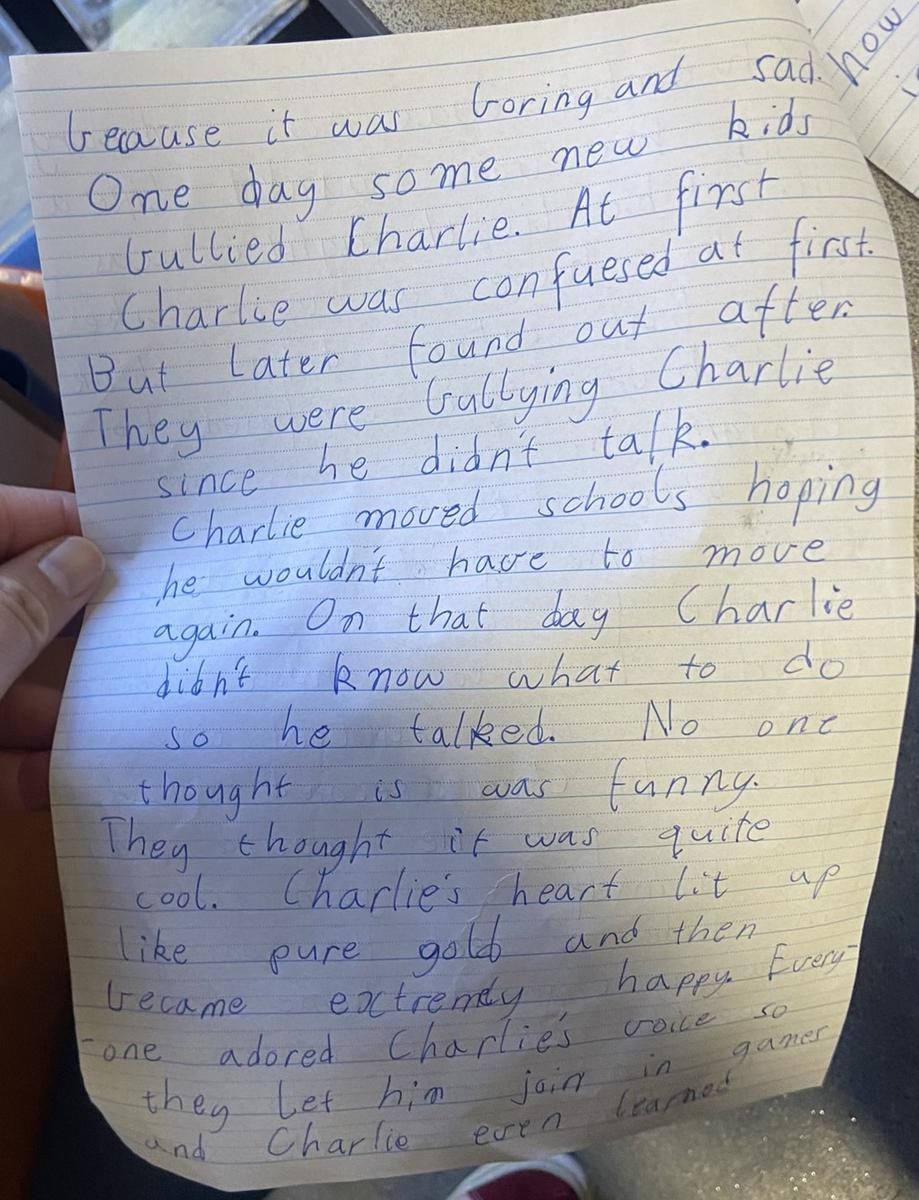 because it was boring and sad.
One day some new kids
bullied Charlie. At first
Charlie was confuesed at first.
But later found out after.
They were bullying Charlie
since he didn't talk.
Charlie moved schools hoping
he wouldn't have to move
again. On that day Charlie
didn't know what to do
so he talked. No one
thought is was funny.
They thought it was quite
cool. Charlie's heart lit up
like pure gold and then
became extremely happy. Every-
-one adored Charlie's voice so
they let him join in games
and Charlie even learned
how